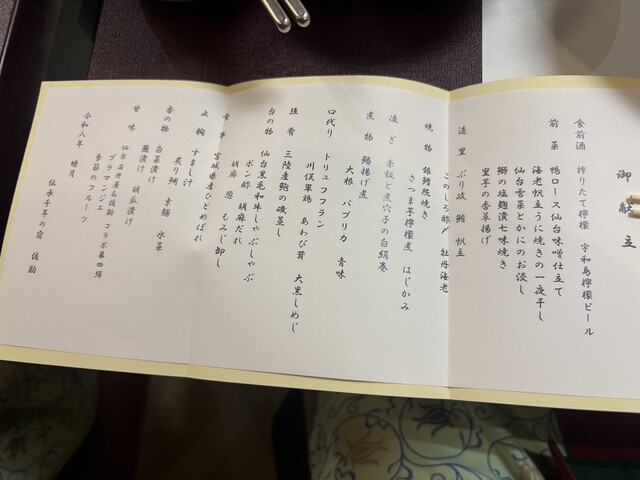 御献立
食前酒 搾りたて檸檬 宇和島檸檬ビール
前菜 鴨ロース仙台味噌仕立て
海老帆立うに焼きの一夜干し
仙台雪菜とかにのお浸し
鰤の塩麹漬七味焼き
里芋の香草揚げ
造里 ぶり 鮪 帆立
このしろ酢〆 牡丹海老
焼物 銀鱈照焼き
さつま芋檸檬煮 はじかみ
凌ぎ 赤飯と煮穴子の白絹巻
煮物 鰯揚げ煮
大根 パプリカ 青味
口代り トリュフフラン
川俣軍鶏 あわび茸 大黒しめじ
強肴 三陸産鮑の磯蒸し
台の物 仙台黒毛和牛しゃぶしゃぶ
ポン酢 胡麻だれ
胡麻 葱 もみじ卸し
食事 宮城県産ひとめぼれ
止椀 すまし汁
炙り鯛 素麺 水菜
香の物 白菜漬け
蕪漬け 胡瓜漬け
甘味 仙台石井屋&佐勘 コラボ第四弾
ブラマンジェ
季節のフルーツ
令和八年 睦月
伝承千年の宿 佐勘